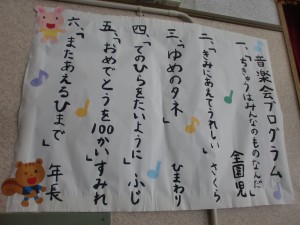 音楽会プログラム
一、「ちきゅうはみんなのものなんだ」
全園児
二、「きみにあえてうれしい」 さくら
三、「ゆめのタネ」 ひまわり
四、「てのひらをたいように」 ふじ
五、「おめでとうを100かい」 すみれ
六、「またあえるひまで」 年長